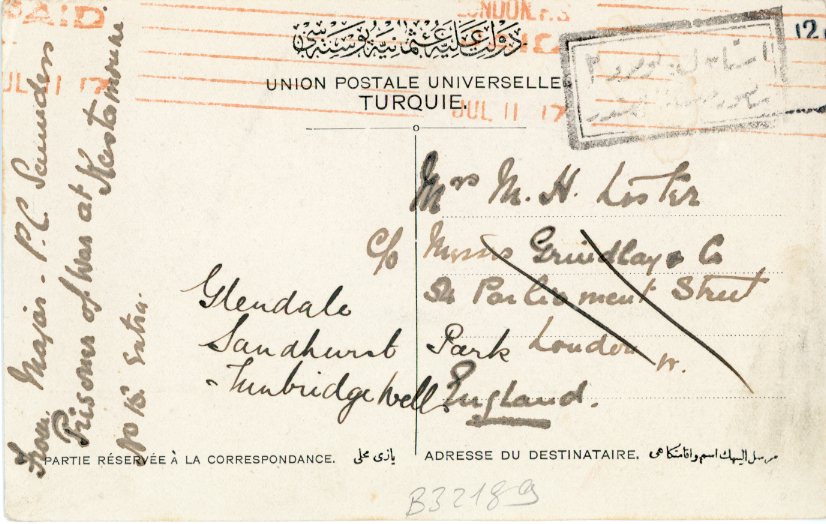 PAID
JUL 11 17
LONDON. F.S
JUL 11 17
12
دولت عليه عثمانيه پوسته سی
UNION POSTALE UNIVERSELLE
TURQUIE.
From Major P.C. Saunders
Prisoner of War at Kastamouni.
No 13 Extra.
Mrs M. H. Loster
c/o Messrs Grindlay & Co
54 Parliament Street
London
England.
Glendale
Sandhurst Park
Tunbridge Well
PARTIE RÉSERVÉE À LA CORRESPONDANCE. يازی محلی
ADRESSE DU DESTINATAIRE. مرسل اليهك اسم واقامتكاهی
B32189